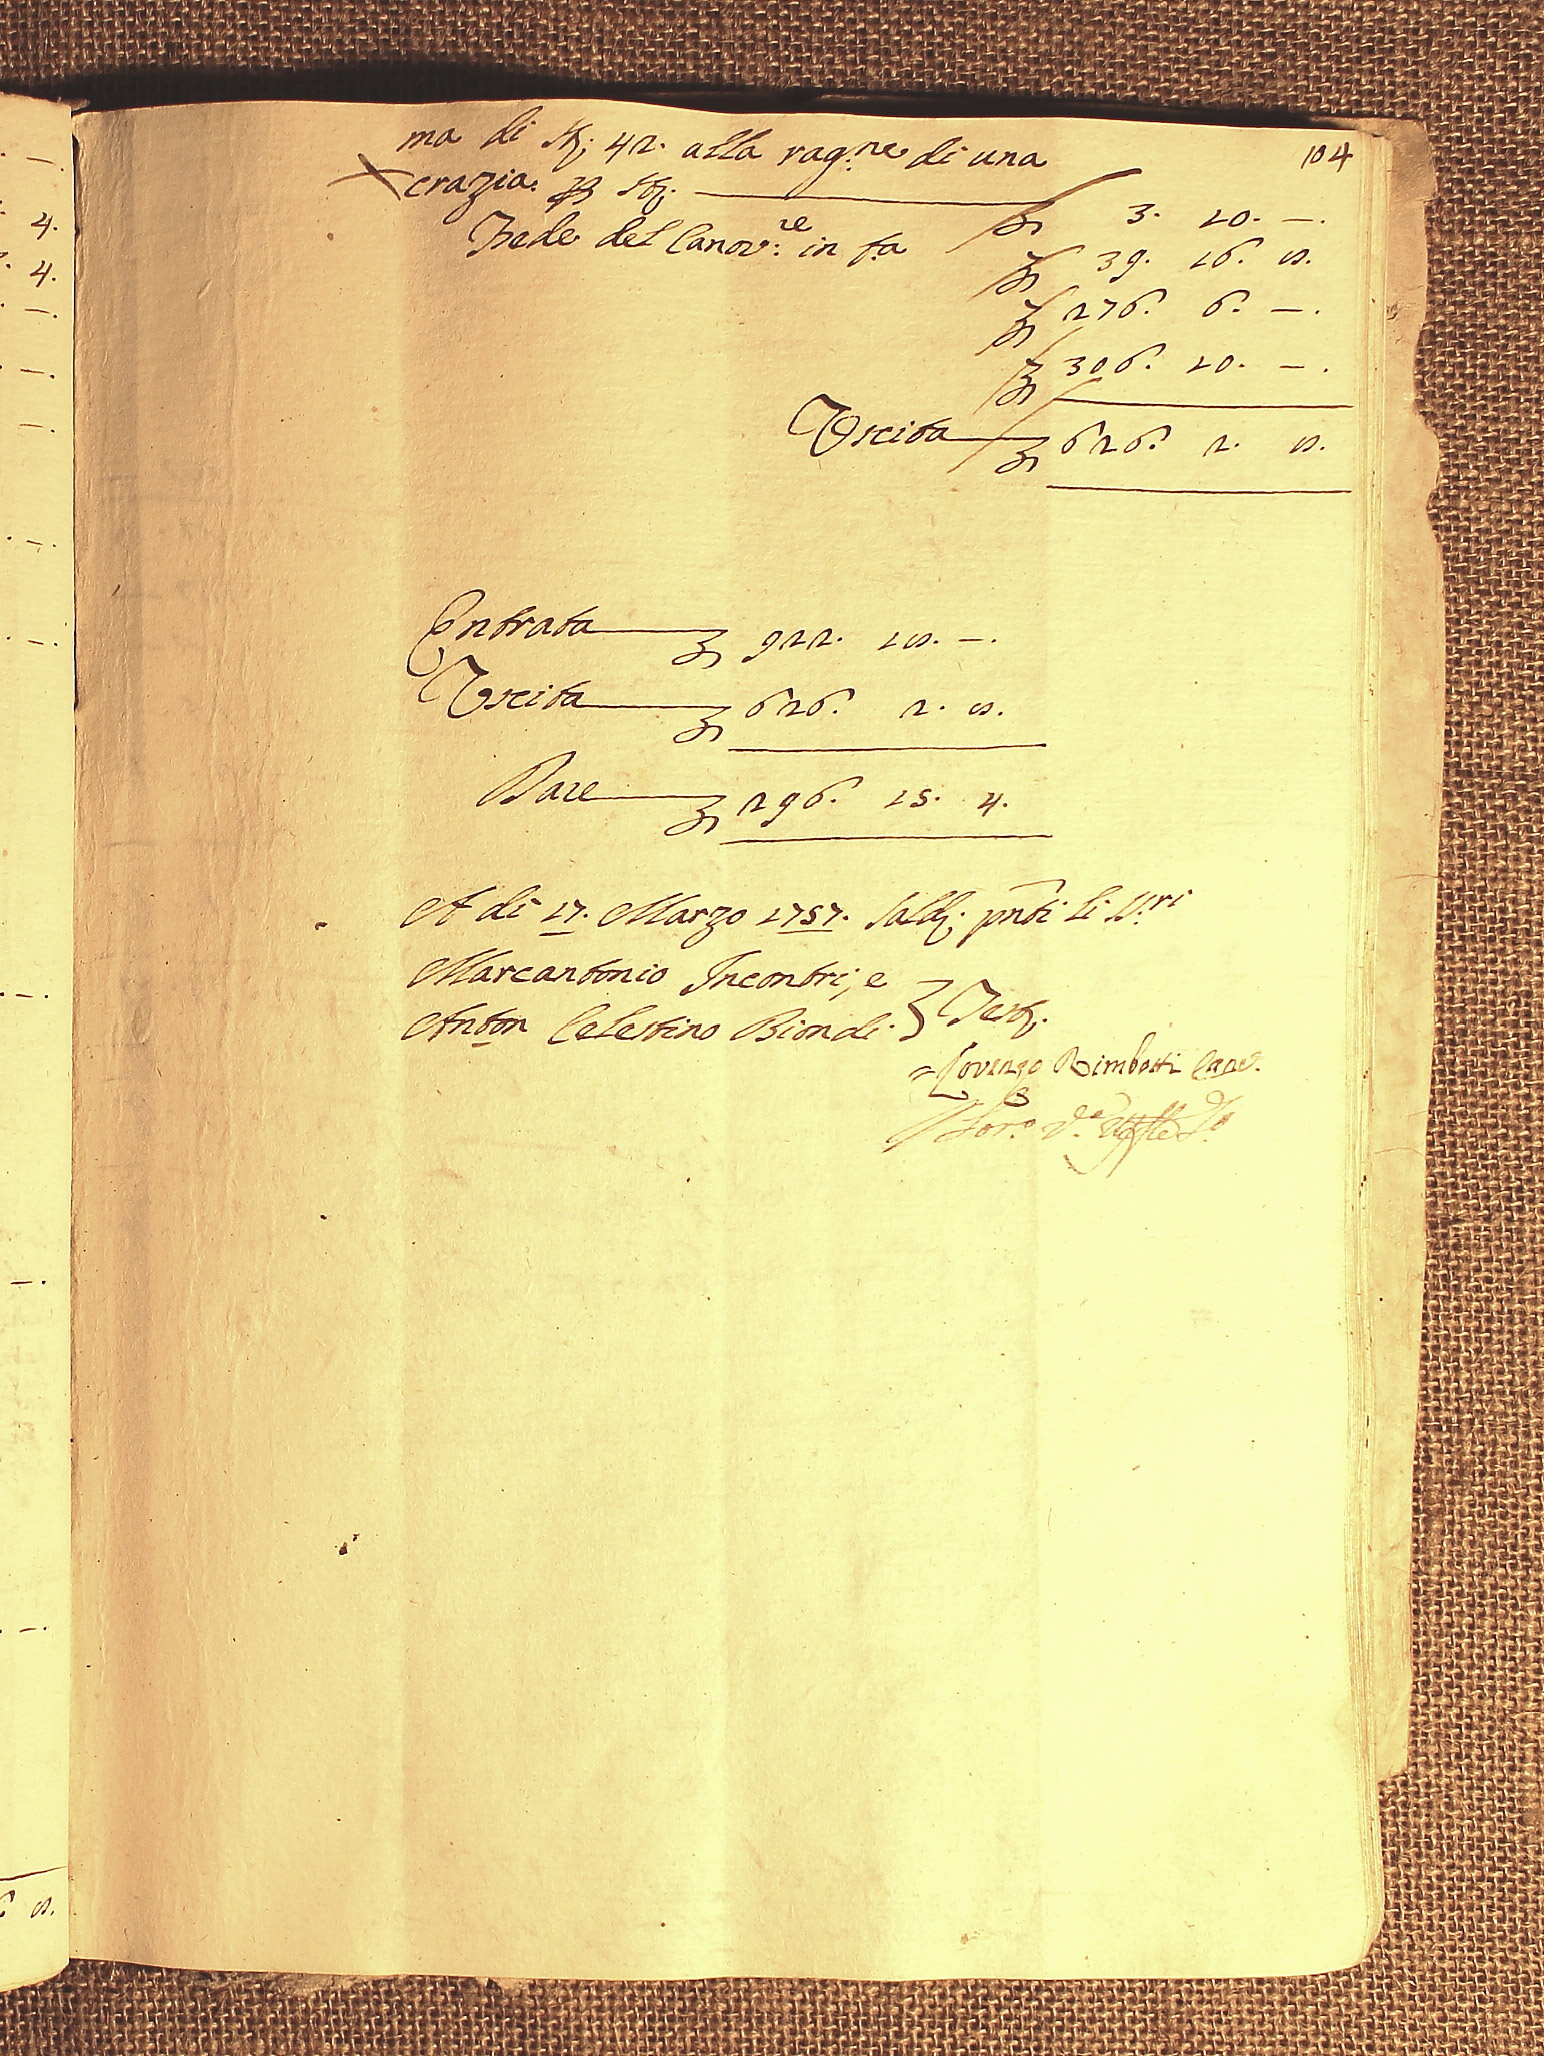 104
ma di St; 42. alla rag.ne di una
crazia p St. ₤ 3. 10. —.
Fede del Canov.re in fa ₤ 39. 16. 8.
₤ 276. 6. —.
₤ 306. 10. —.
Uscita ₤ 626. 2. 8.
Entrata ₤ 922. 18. —.
Uscita ₤ 626. 2. 8.
Dare ₤ 296. 15. 4.
A dì 17. Marzo 1757. Sald. pnti li SS.ri
Marcantonio Incontri, e
Anton Celestino Biondi. } Test.
= Lorenzo Rimbotti Canc.
Lor.o
4.
4.
8.